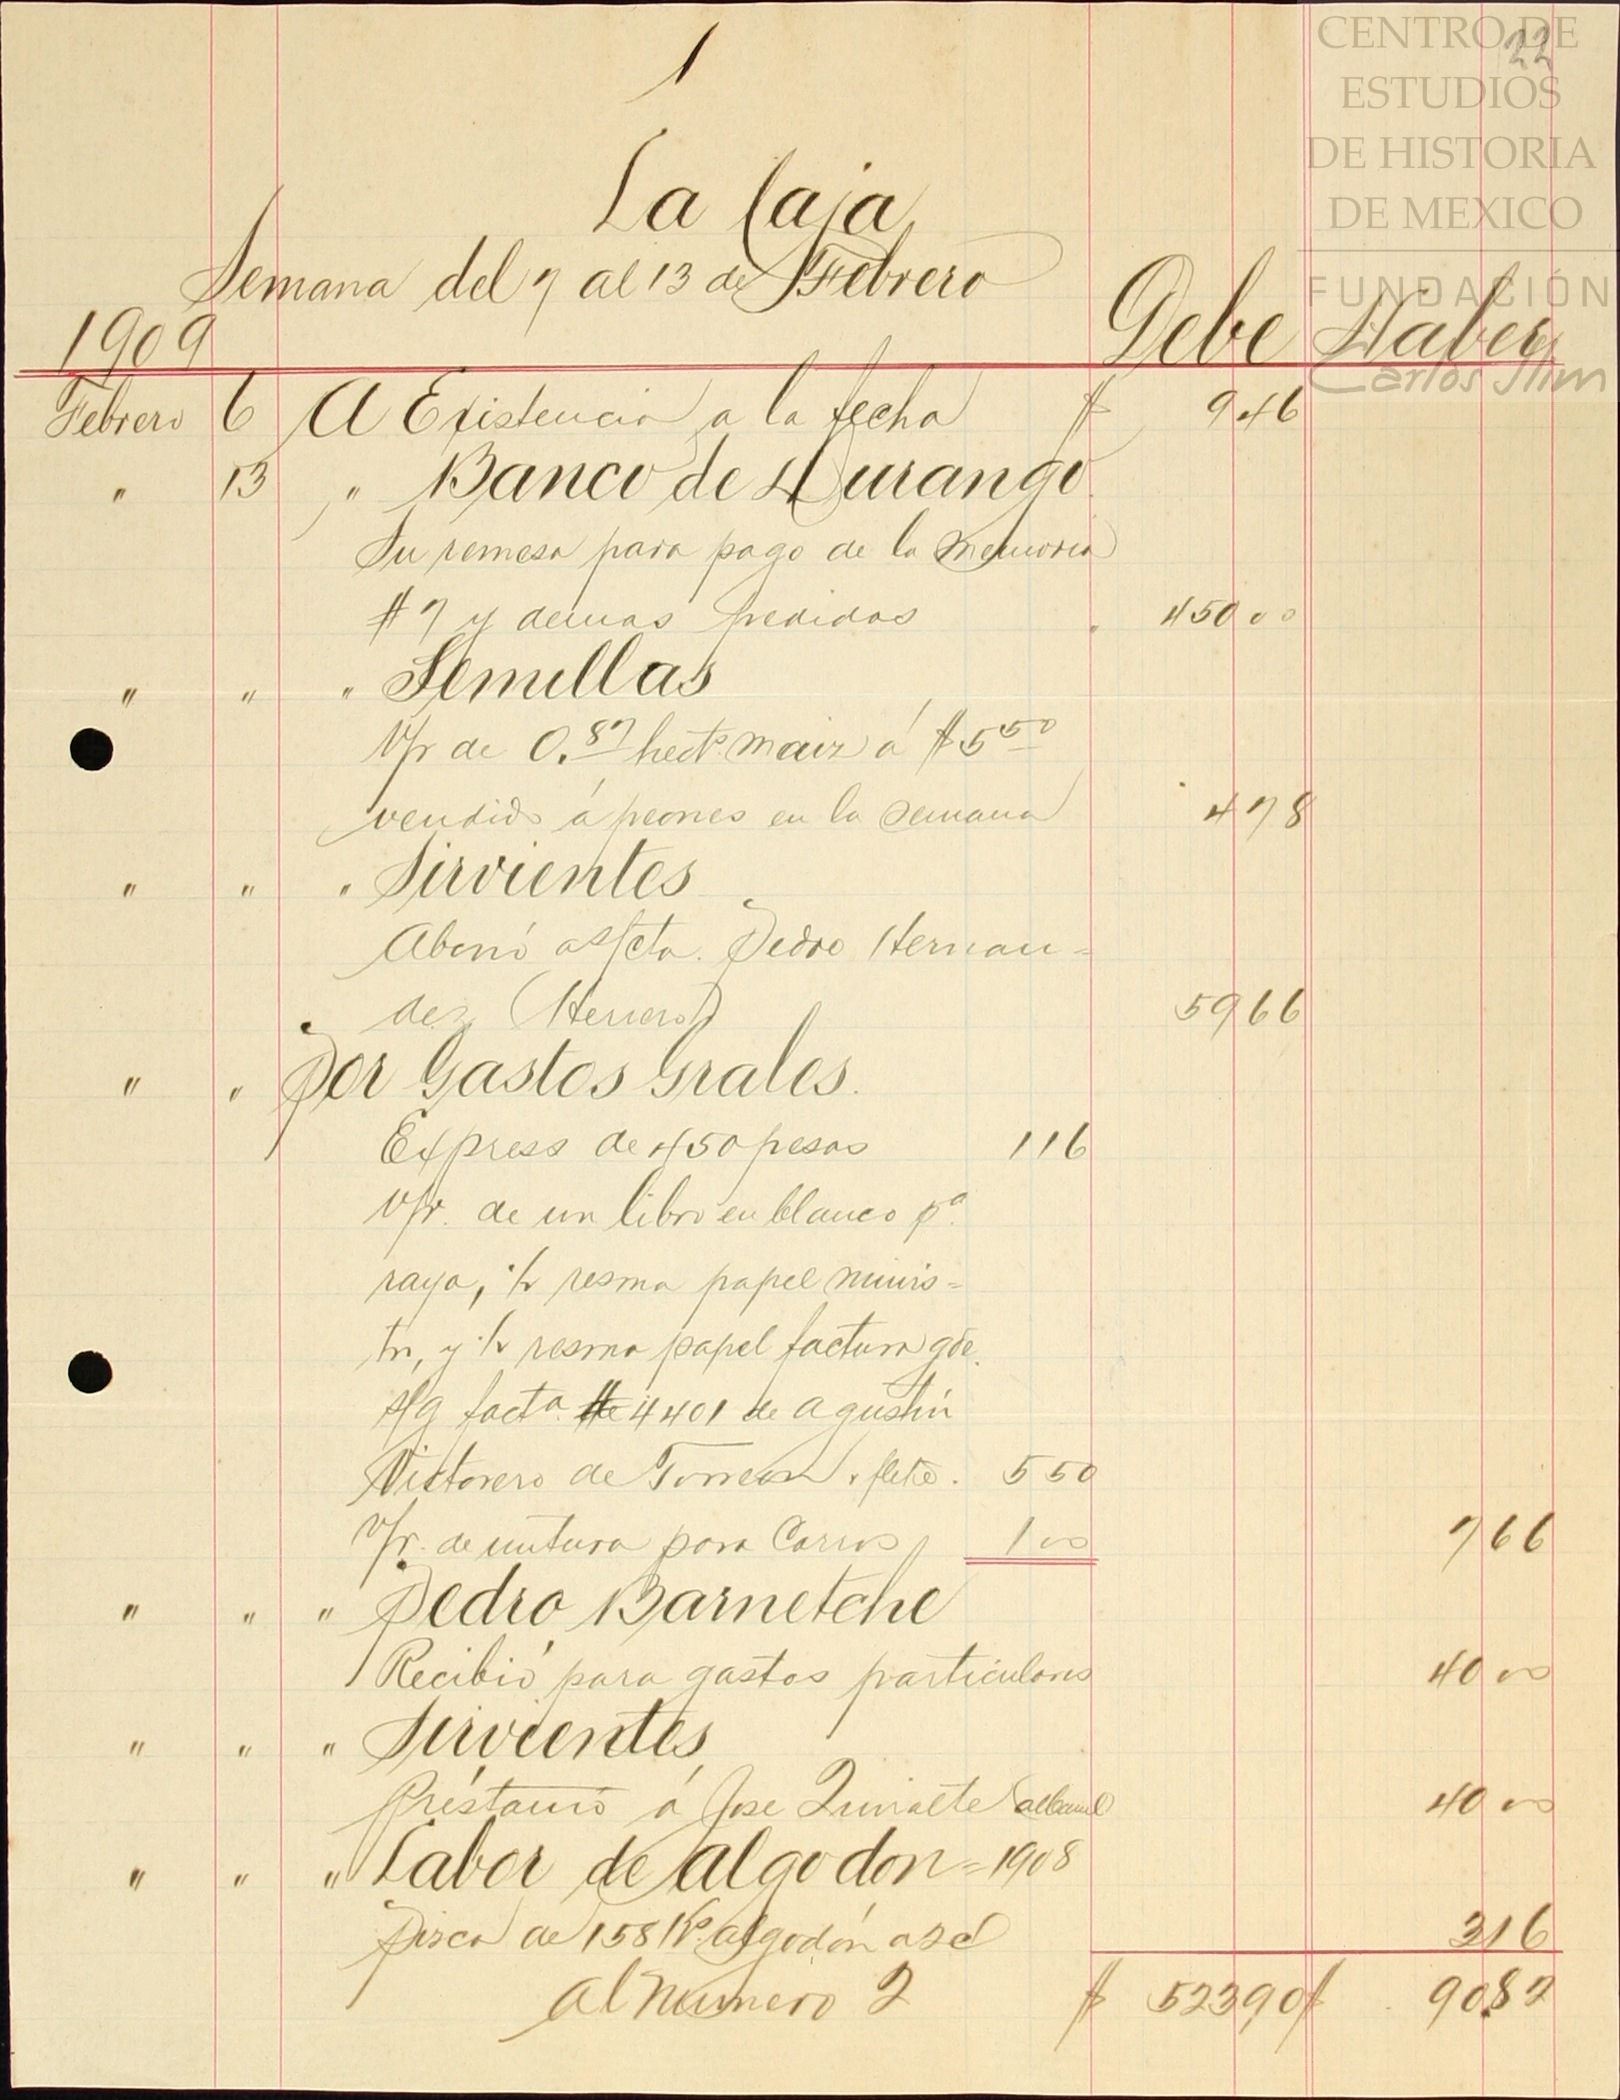 1
22
CENTRO DE
ESTUDIOS
DE HISTORIA
DE MEXICO
FUNDACIÓN
Carlos Slim
La Caja
Semana del 7 al 13 de Febrero
1909 Debe Haber
Febrero 6 A Existencia a la fecha $ 9 46
" 13 " Banco de Durango
Su remesa para pago de la memoria
# 7 y demas pedidos " 450 00
" " " Semillas
V/r de 0.87 hects. maiz á $ 5 50
vendido á peones en la semana 4 78
" " " Sirvientes
Abonó a s/cta. Pedro Hernan=
dez (Herrero) 59 66
" " Por Gastos Grales.
Express de 450 pesos 1 16
V/r. de un libro en blanco pa.
raya, 1/2 resma papel minis=
tro, y 1/2 resma papel factura gde.
s/g facta. # 4401 de Agustin
Victorero de Torreon y flete. 5 50
V/r. de untura para Carros 1 00 7 66
" " " Pedro Barnetche
Recibió para gastos particulares 40 00
" " " Sirvientes
Préstamo á Jose albanil 40 00
" " " Labor de algodon = 1908
Pisca de 158 Ks. algodón a 2 c 3 16
al numero 2 $ 523 90 $ 90.82